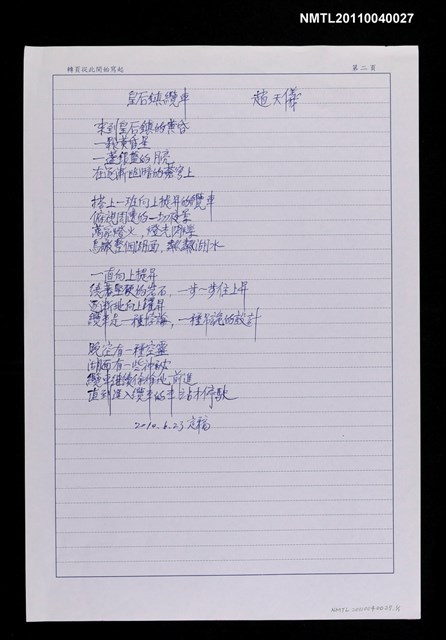 NMTL20110040027
轉頁從此開始寫起
第二頁
皇后鎮纜車 趙天儀
來到皇后鎮的黃昏
一顆黃昏星
一盞銀盤的月亮
在逐漸暗的蒼穹上
搭上一班向上提昇的纜車
俯視周邊的一切夜景
萬家燈火,燈光閃爍
鳥瞰整個湖面,粼粼湖水
一直向上提昇
繞著堅硬的岩石,一步一步往上昇
逐漸地向上躍昇
纜車是一種,一種的設計
夜空有一種空靈
湖面有一些神秘
纜車繼續地前進
直到進入纜車的車站才停歇
2010.6.23定稿
NMTL20110040027_k